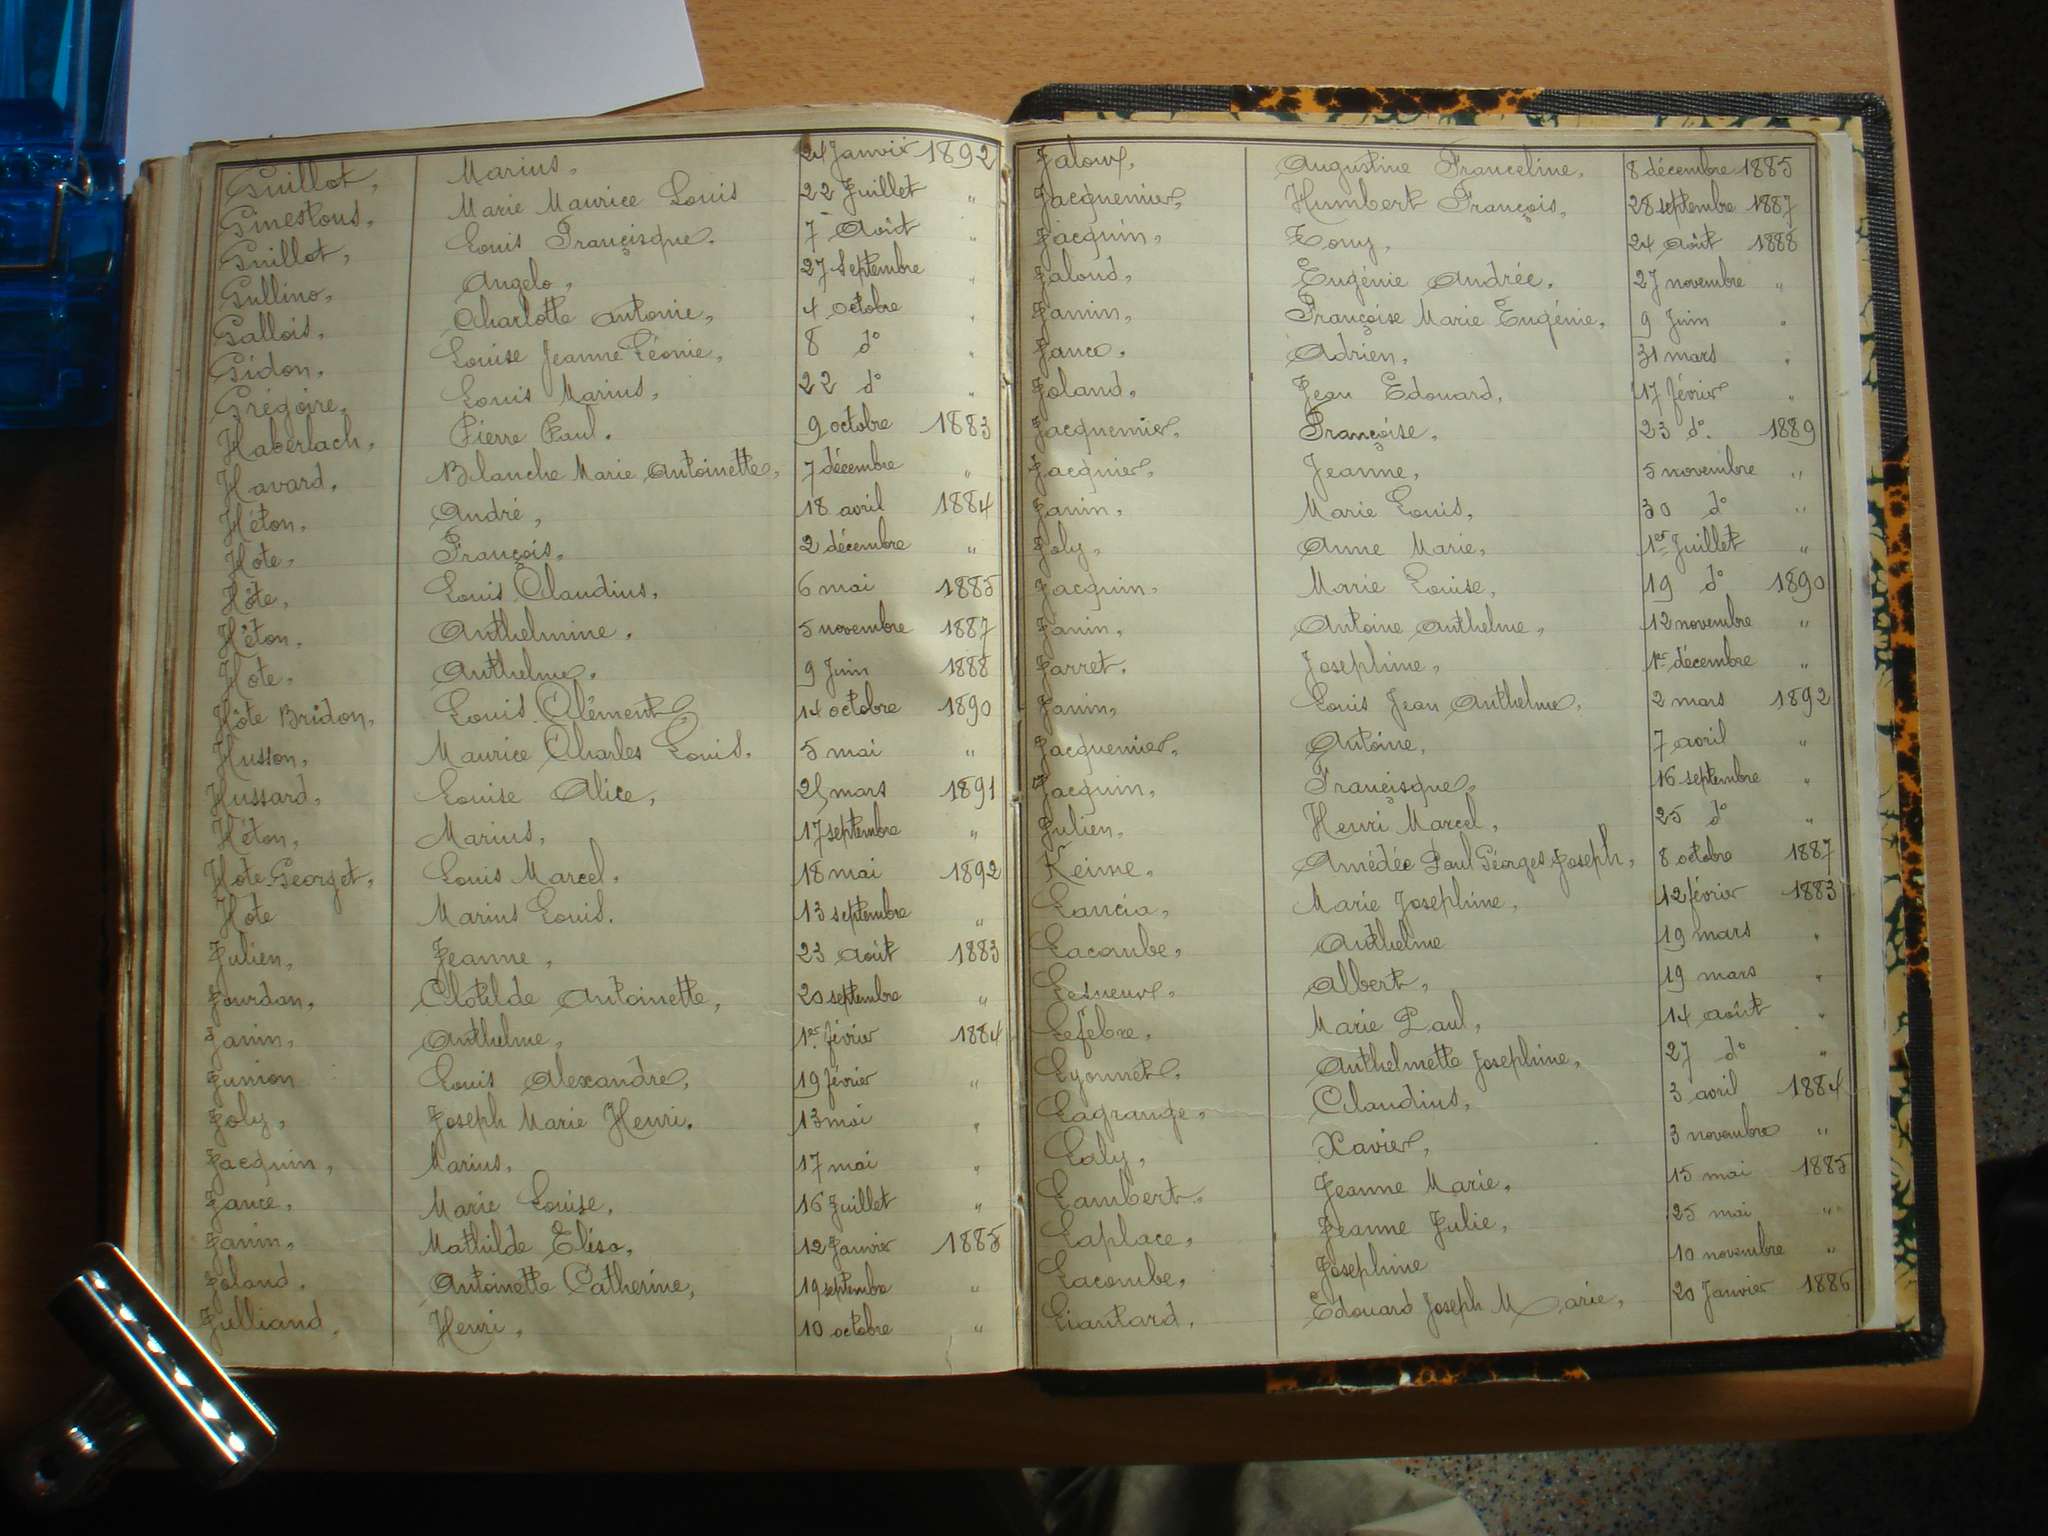 Guillot, Marius, 24 Janvier 1892
Ginestous, Marie Maurice Louis 22 Juillet "
Guillot, Louis Françisque. 7 Août "
Gullino, Angelo, 27 Septembre "
Gallois, Charlotte Antonie, 4 Octobre "
Gidon, Louise Jeanne Léonie, 8 d° "
Grégoire, Louis Marius, 22 d° "
Haberlach, Pierre Paul. 9 octobre 1883
Havard, Blanche Marie Antoinette, 7 décembre "
Héton, André, 18 avril 1884
Hote, François, 2 décembre "
Hôte, Louis Claudius, 6 mai 1885
Héton, Anthelmine. 5 novembre 1887
Hote, Anthelme. 9 Juin 1888
Hôte Bridon, Louis Clément 14 octobre 1890
Husson, Maurice Charles Louis. 5 mai "
Hussard, Louise Alice, mars 1891
Héton, Marius, 17 septembre "
Hote Georget, Louis Marcel, 18 mai 1892
Hote Marius Louis. 13 septembre "
Julien, Jeanne, 23 août 1883
Jourdan, Clotilde Antoinette, 20 septembre "
Janin, Anthelme, 1er février 1884
Junion Louis Alexandre, 19 février "
Joly, Joseph Marie Henri. 13 mai "
Jacquin, Marius, 17 mai "
Jance, Marie Louise, 16 Juillet "
Janin, Mathilde Elisa, 12 Janvier 1885
Joland, Antoinette Catherine, 19 septembre "
Julliand, Henri, 10 octobre "
Jaloux, Augustine Franceline, 8 décembre 1885
Jacquemier, Humbert François, 28 septembre 1887
Jacquin, Tony, 24 Août 1888
Jaloud, Eugénie Andrée. 27 novembre "
Janin, Françoise Marie Eugénie, 9 Juin "
Jance. Adrien, 31 mars "
Joland, Jean Edouard, 17 février "
Jacquemier, Françoise, 23 d°. 1889
Jacquier, Jeanne, 5 novembre "
Janin, Marie Louis, 30 d° "
Joly, Anne Marie, 1er Juillet "
Jacquin, Marie Louise, 19 d° 1890
Janin, Antoine Anthelme, 12 novembre "
Jarret. Josephine, 1er décembre "
Janin, Louis Jean Anthelme, 2 mars 1892
Jacquemier, Antoine, 7 avril "
Jacquin, Françisque, 16 septembre "
Julien, Henri Marcel, 25 d° "
Keime, Amédée Paul Géorges Joseph, 8 octobre 1887
Lancia, Marie Josephine, 12 février 1883
Lacombe, Anthelme 19 mars "
Lesneux, Albert, 19 mars "
Lefèbre, Marie Paul, 14 août "
Lyonnet, Anthelmette Josephine, 27 d° "
Lagrange, Claudius, 3 avril 1884
Laly, Xavier, 3 novembre "
Lambert, Jeanne Marie, 15 mai 1885
Laplace, Jeanne Julie, 25 mai "
Lacombe, Josephine 10 novembre "
Liautard, Edouard Joseph Marie, 20 Janvier 1886